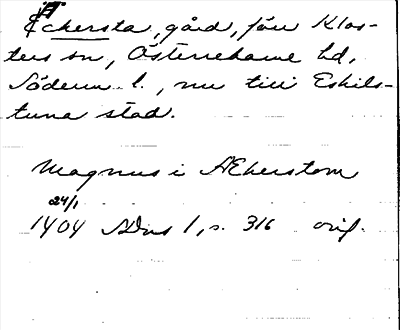 Eckersta, gård, förr Klos-
ters sn, Österrekarne hd,
Söderm. l., nu till Eskils-
tuna stad.
Magnus i Ækerstom
24/1
1404 SDns 1, s. 316 orig.